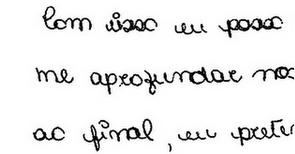 Com isso eu posso
me aprofundar no
ao final, eu prete